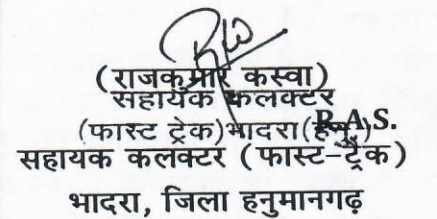 (राजकुमार कस्वा)
सहायक कलक्टर
(फास्ट ट्रेक)भादरा( R.A.S.
सहायक कलक्टर (फास्ट-ट्रैक)
भादरा, जिला हनुमानगढ़